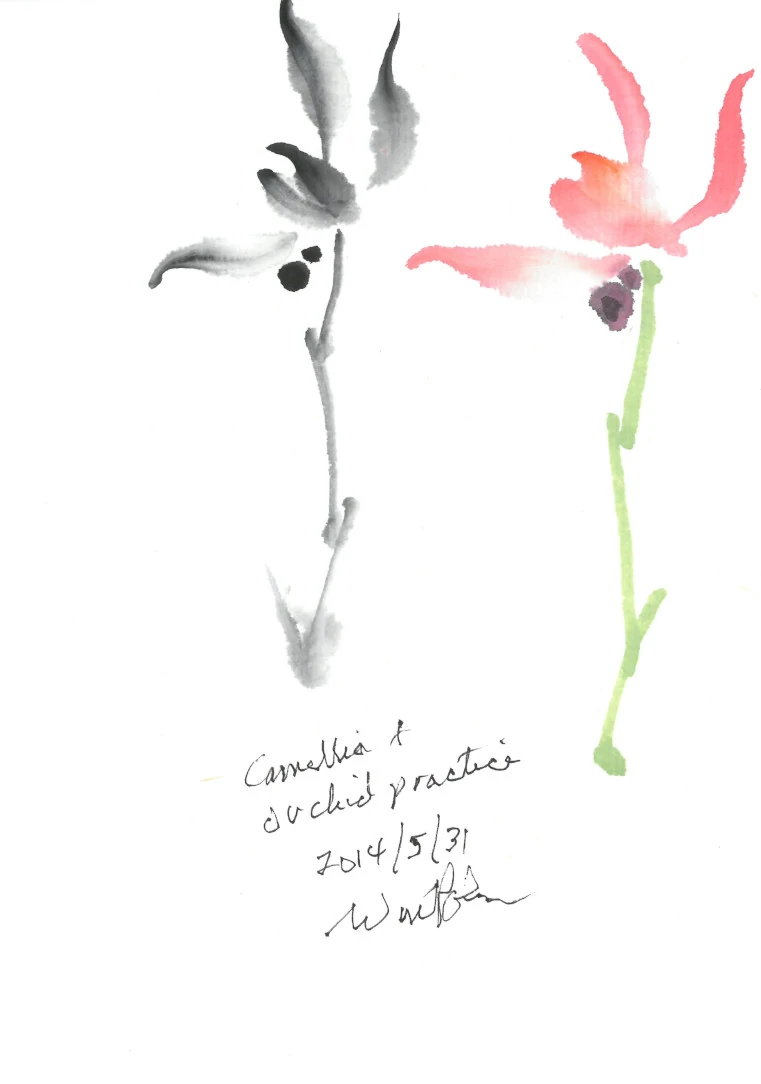 Camellia &
orchid practice
2014/5/31